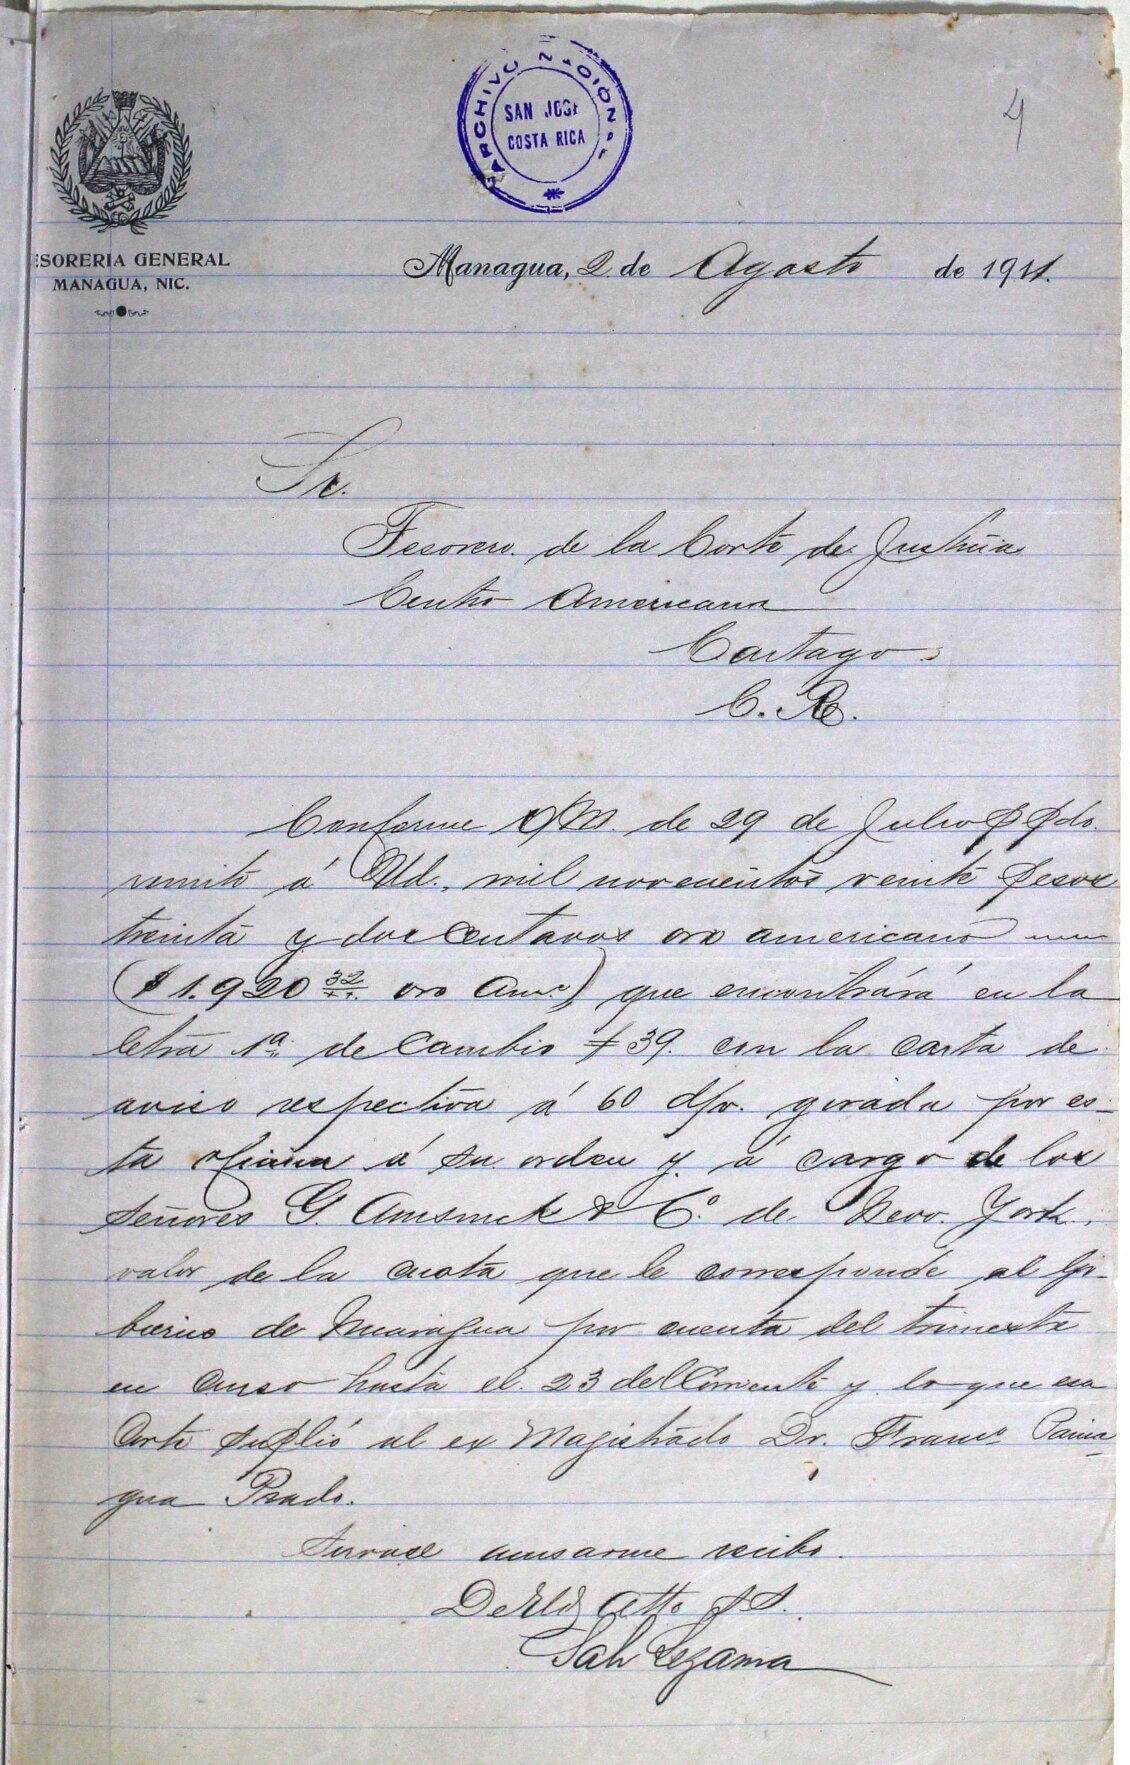 4
ARCHIVO NACIONAL
SAN JOSE
COSTA RICA
ESORERIA GENERAL
MANAGUA, NIC.
Managua, 2 de Agosto de 1911.
Sr.
Tesorero de la Corte de Justicia
Centro Americana
Cartago
C. R.
Conforme O/M. de 29 de Julio ppdo.
remito á Ud., mil novecientos veinte pesos
treinta y dos centavos oro americano
($ 1.920 32 oro Amc.) que encontrará en la
letra 1ª de Cambio # 39. con la carta de
aviso respectiva á 60 d/v. girada por es-
ta oficina á su orden y á cargo de los
señores G. Amsinck & Cº de New. York,
valor de la cuota que le corresponde al Go-
bierno de Nicaragua por cuenta del trimestre
en curso hasta el 23 del Corriente y lo que esa
Corte suplió al ex Magistrado Dr. Francº Pania-
gua Prado.
Sírvase acusarme recibo.
De Ud Atto S S.
Salv Lezama